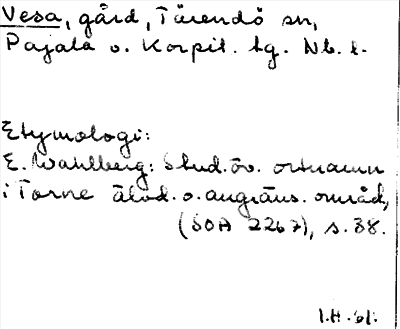 Vesa, gård, Tärendö sn,
Pajala o. Korpil. tg. Nb. l.
Etymologi:
E. Wahlberg: Stud. öv. ortnamn
i Torne älvd. o. angräns. områd,
(SOA 2267), s. 38.
I.H. 61.